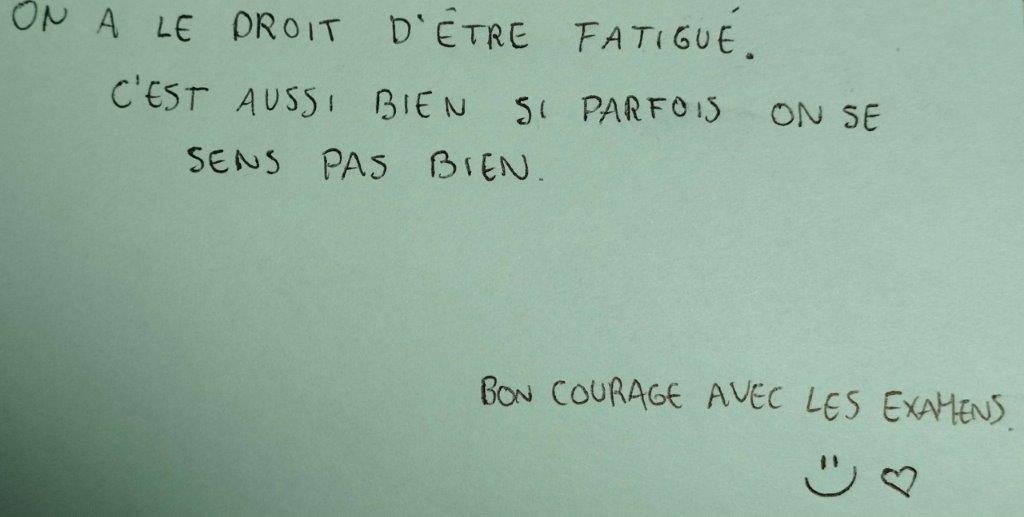 ON A LE DROIT D'ÊTRE FATIGUÉ.
C'EST AUSSI BIEN SI PARFOIS ON SE
SENS PAS BIEN.
BON COURAGE AVEC LES EXAMENS.